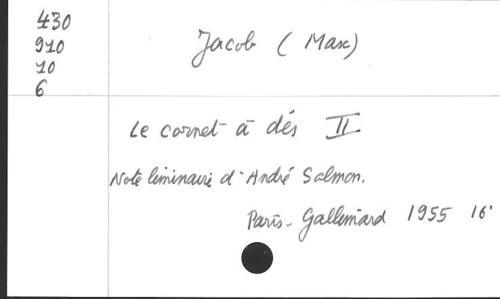 430
910
10
6
Jacob (Max)
Le cornet à dés II
Note liminaire d'André Salmon.
Paris - Gallimard 1955 16°